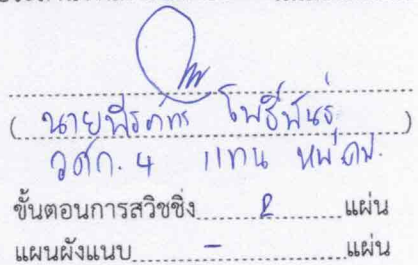 (นายพีรภัทร โพธิ์พันธุ์)
วศก. 4 แทน หผ.
ขั้นตอนการสวิชชิ่ง 2 แผ่น
แผนผังแนบ - แผ่น